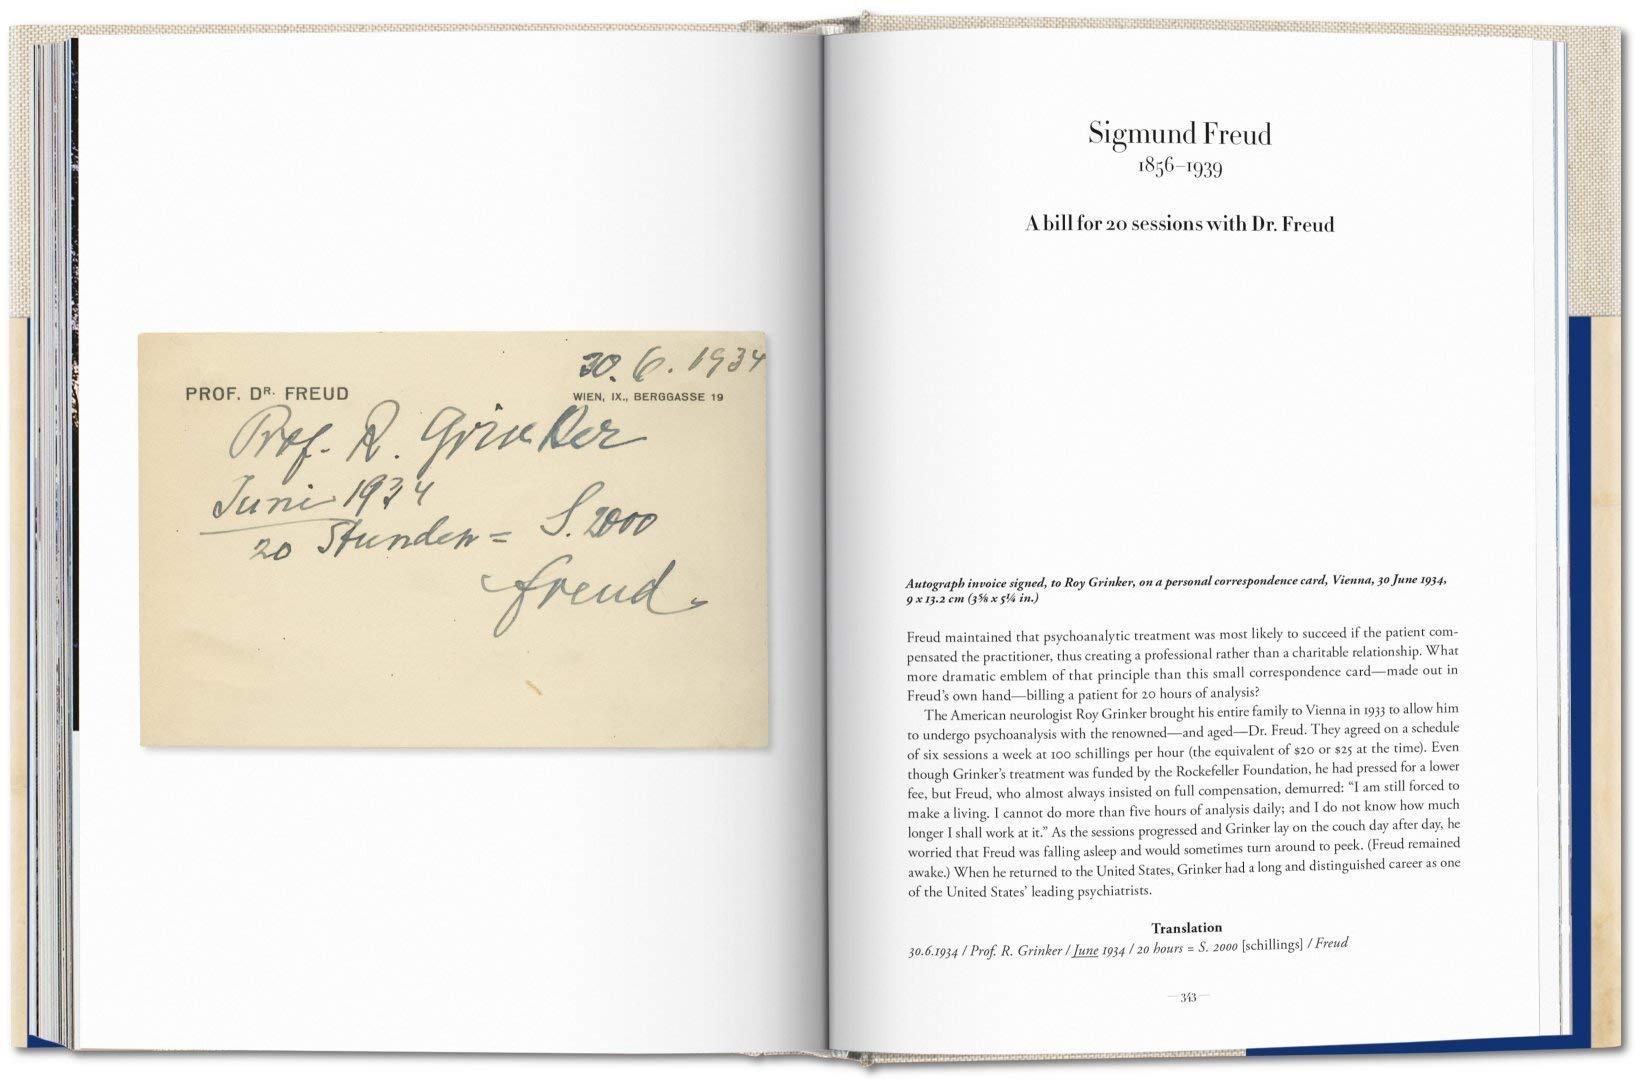 30. 6. 1934
PROF. DR. FREUD
WIEN, IX., BERGGASSE 19
Prof. R. Grinker
Juni 1934
20 Stunden = S. 2000
Freud
Sigmund Freud
1856–1939
A bill for 20 sessions with Dr. Freud
Autograph invoice signed, to Roy Grinker, on a personal correspondence card, Vienna, 30 June 1934,
9 x 13.2 cm (3⅝ x 5¼ in.)
Freud maintained that psychoanalytic treatment was most likely to succeed if the patient com-
pensated the practitioner, thus creating a professional rather than a charitable relationship. What
more dramatic emblem of that principle than this small correspondence card—made out in
Freud's own hand—billing a patient for 20 hours of analysis?
The American neurologist Roy Grinker brought his entire family to Vienna in 1933 to allow him
to undergo psychoanalysis with the renowned—and aged—Dr. Freud. They agreed on a schedule
of six sessions a week at 100 schillings per hour (the equivalent of $20 or $25 at the time). Even
though Grinker's treatment was funded by the Rockefeller Foundation, he had pressed for a lower
fee, but Freud, who almost always insisted on full compensation, demurred: “I am still forced to
make a living. I cannot do more than five hours of analysis daily; and I do not know how much
longer I shall work at it.” As the sessions progressed and Grinker lay on the couch day after day, he
worried that Freud was falling asleep and would sometimes turn around to peek. (Freud remained
awake.) When he returned to the United States, Grinker had a long and distinguished career as one
of the United States' leading psychiatrists.
Translation
30.6.1934 / Prof. R. Grinker / June 1934 / 20 hours = S. 2000 [schillings] / Freud
—343—